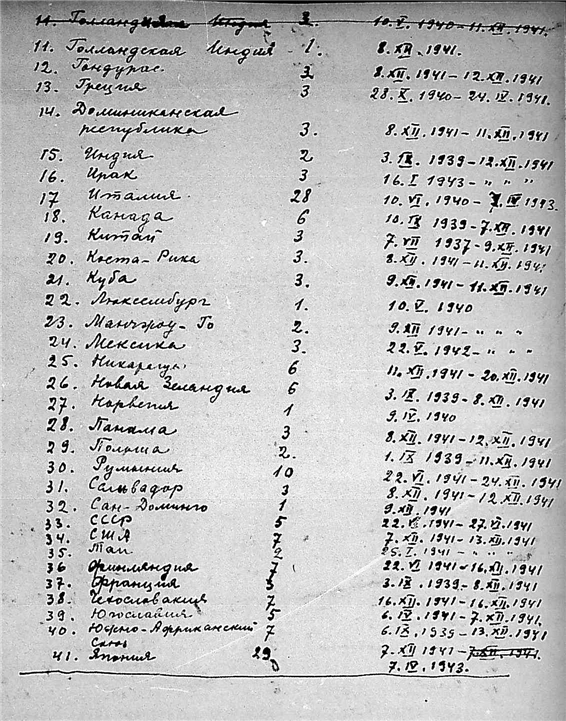 11. Голландская Индия 2. 10.V.1940–11.XII.1941.
11. Голландская Индия - 1. 8.XII.1941.
12. Гондурас. 3 8.XII.1941–12.XII.1941
13. Греция 3 28.X.1940–24.IV.1941.
14. Доминиканская
республика 3. 8.XII.1941–11.XII.1941
15. Индия 2 3.IX.1939–12.XII.1941
16. Ирак 3 16.I 1943– " " "
17 Италия. 28 10.VI.1940– IV 1943.
18. Канада 6 10.IX 1939–7.XII.1941
19. Китай 3 7.VII 1937–9.XII.1941
20. Коста-Рика 3. 8.XII.1941–11.XII.1941
21. Куба 3. 9.XII.1941–11.XII.1941
22. Люксембург 1. 10.V.1940
23. Манчжоу-Го 2. 9.XII 1941– " " "
24. Мексика 3. 22.V.1942– " " "
25. Никарагуа 6 11.XII.1941–20.XII.1941
26. Новая Зеландия 6 3.IX.1939–8.XII.1941
27. Норвегия 1 9.IV.1940
28. Панама 3 8.XII.1941–12.XII.1941
29. Польша 2. 1.IX 1939–11.XII.1941
30. Румыния 10 22.VI.1941–24.XII.1941
31. Сальвадор 3 8.XII.1941–12.XII.1941
32. Сан-Доминго 1 9.XII.1941
33. СССР 5 22.VI.1941–27.VI.1941
34. США 7 7.XII.1941–13.XII.1941
35. Таи 2 25.I.1941– " " "
36 Финляндия 7 22.VI 1941–16.XII.1941
37. Франция 3 3.IX.1939–8.XII.1941
38. Чехословакия 7 16.XII.1941–16.XII.1941
39. Югославия 5 6.IV.1941–7.XII.1941
40. Южно-Африканский 7 6.IX.1939–13.XII.1941
Союз
41. Япония 29 7.XII 1941–7.XII.1941.
7.IV.1943.